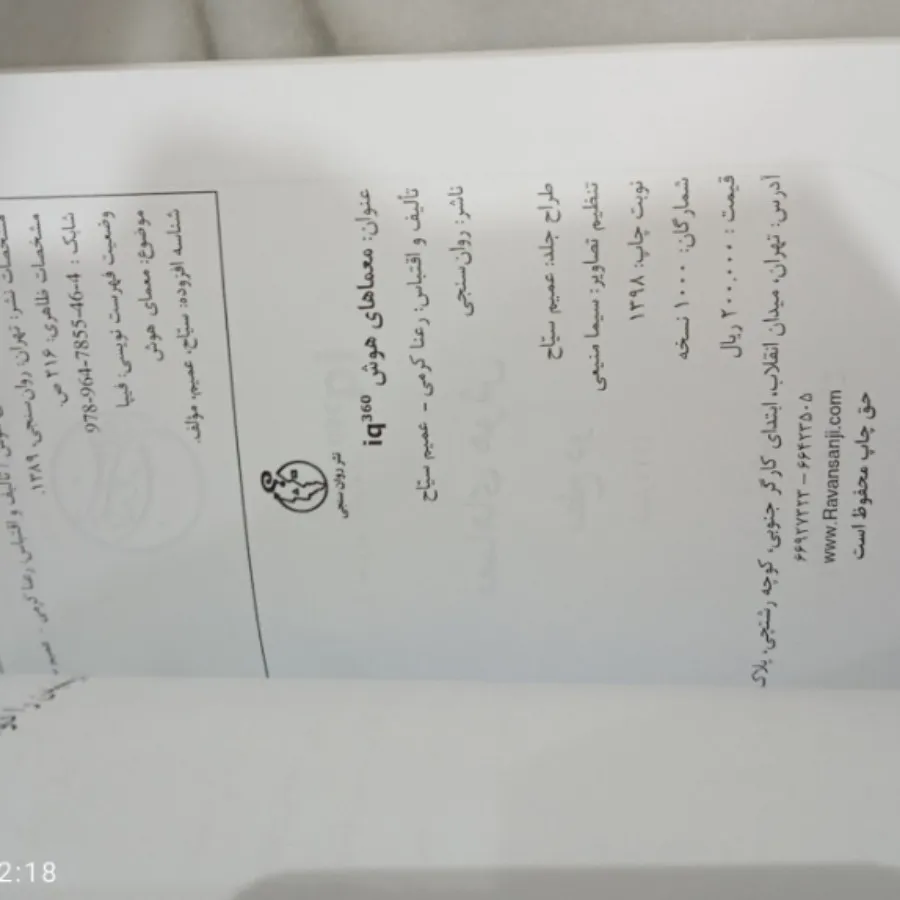 تألیف و اقتباس رعنا کرمی -
مشخصات نشر: تهران: روان‌سنجی، ۱۳۸۹.
مشخصات ظاهری: ۲۱۶ ص.
شابک : 978-964-7855-46-4
وضعیت فهرست نویسی: فیپا
موضوع: معمای هوش
شناسه افزوده: سیّاح، عمیم، مؤلف.
نشر روان سنجی
عنوان: معماهای هوش iq360
تألیف و اقتباس: رعنا کرمی - عمیم سیّاح
ناشر: روان‌سنجی
طراح جلد: عمیم سیّاح
تنظیم تصاویر: سیما منیعی
نوبت چاپ: ۱۳۹۸
شمارگان: ۱۰۰۰ نسخه
قیمت : ۲۰۰.۰۰۰ ریال
آدرس: تهران، میدان انقلاب، ابتدای کارگر جنوبی، کوچه رشتچی، پلاک
۶۶۹۲۷۳۲۲ - ۶۶۴۲۳۵۰۵
www.Ravansanji.com
حق چاپ محفوظ است
2:18